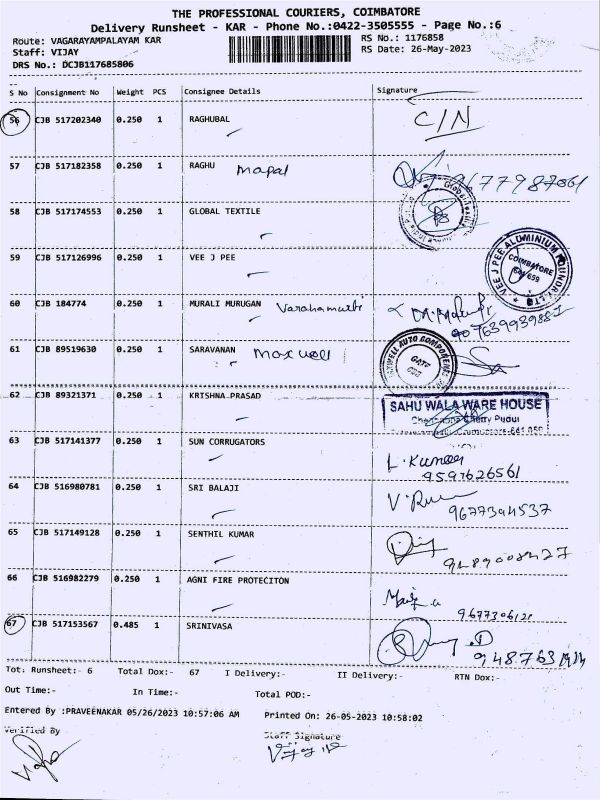 THE PROFESSIONAL COURIERS, COIMBATORE
Delivery Runsheet - KAR - Phone No.:0422-3505555 - Page No.:6
Route: VAGARAYAMPALAYAM KAR RS No.: 1176858
Staff: VIJAY RS Date: 26-May-2023
DRS No.: DCJB117685806
S No Consignment No Weight PCS Consignee Details Signature
56 CJB 517202340 0.250 1 RAGHUBAL C/N
57 CJB 517182358 0.250 1 RAGHU Mapal 9677987061
58 CJB 517174553 0.250 1 GLOBAL TEXTILE
59 CJB 517126996 0.250 1 VEE J PEE VEE J PEE ALUMINIUM FOUNDRY COIMBATORE
60 CJB 184774 0.250 1 MURALI MURUGAN Varahamurthi
61 CJB 89519630 0.250 1 SARAVANAN Maxwell AUTO COMPONENTS GATE
62 CJB 89321371 0.250 1 KRISHNA PRASAD SAHU WALA WARE HOUSE
63 CJB 517141377 0.250 1 SUN CORRUGATORS L. Kumar
9597626561
64 CJB 516980781 0.250 1 SRI BALAJI
9677394537
65 CJB 517149128 0.250 1 SENTHIL KUMAR 9489008427
66 CJB 516982279 0.250 1 AGNI FIRE PROTECITON
67 CJB 517153567 0.485 1 SRINIVASA
Tot: Runsheet:- 6 Total Dox:- 67 I Delivery:- II Delivery:- RTN Dox:-
Out Time:- In Time:- Total POD:-
Entered By :PRAVEENAKAR 05/26/2023 10:57:06 AM Printed On: 26-05-2023 10:58:02
Verified By Staff Signature